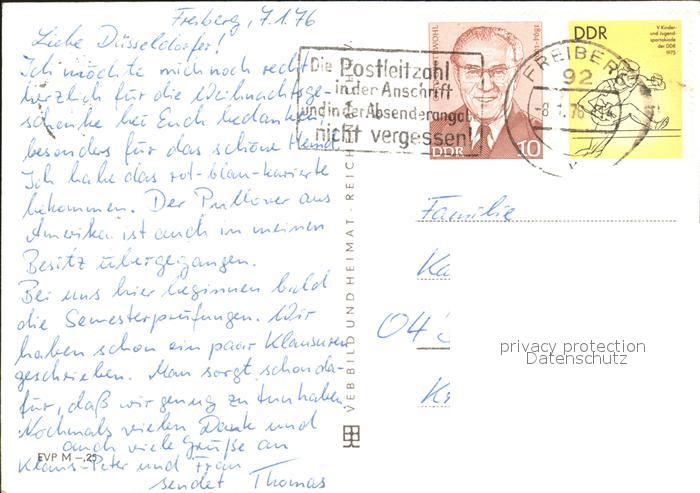 Freiberg, 7.1.76
Liebe Düsseldorfer!
Ich möchte mich noch recht
herzlich für die Weihnachtsge-
schenke bei Euch bedanken,
besonders für das schöne Hemd.
Ich habe das rot-blau-karierte
bekommen. Der Pullover aus
Amerika ist auch in meinen
Besitz übergegangen.
Bei uns hier beginnen bald
die Semesterprüfungen. Wir
haben schon ein paar Klausuren
geschrieben. Man sorgt schon da-
für, daß wir genug zu tun haben.
Nochmals vielen Dank und
auch viele Grüße an
Klaus-Peter und Frau
sendet Thomas
EVP M –,25
VEB BILD UND HEIMAT · REICH
Die Postleitzahl
in der Anschrift
und in der Absenderangabe
nicht vergessen!
WOHL
1894
DDR
10
FREIBERG
92
-8.1.76
DDR
V. Kinder-
und Jugend-
spartakiade
der DDR
1975
Familie
Ka
04
Kr
privacy protection
Datenschutz